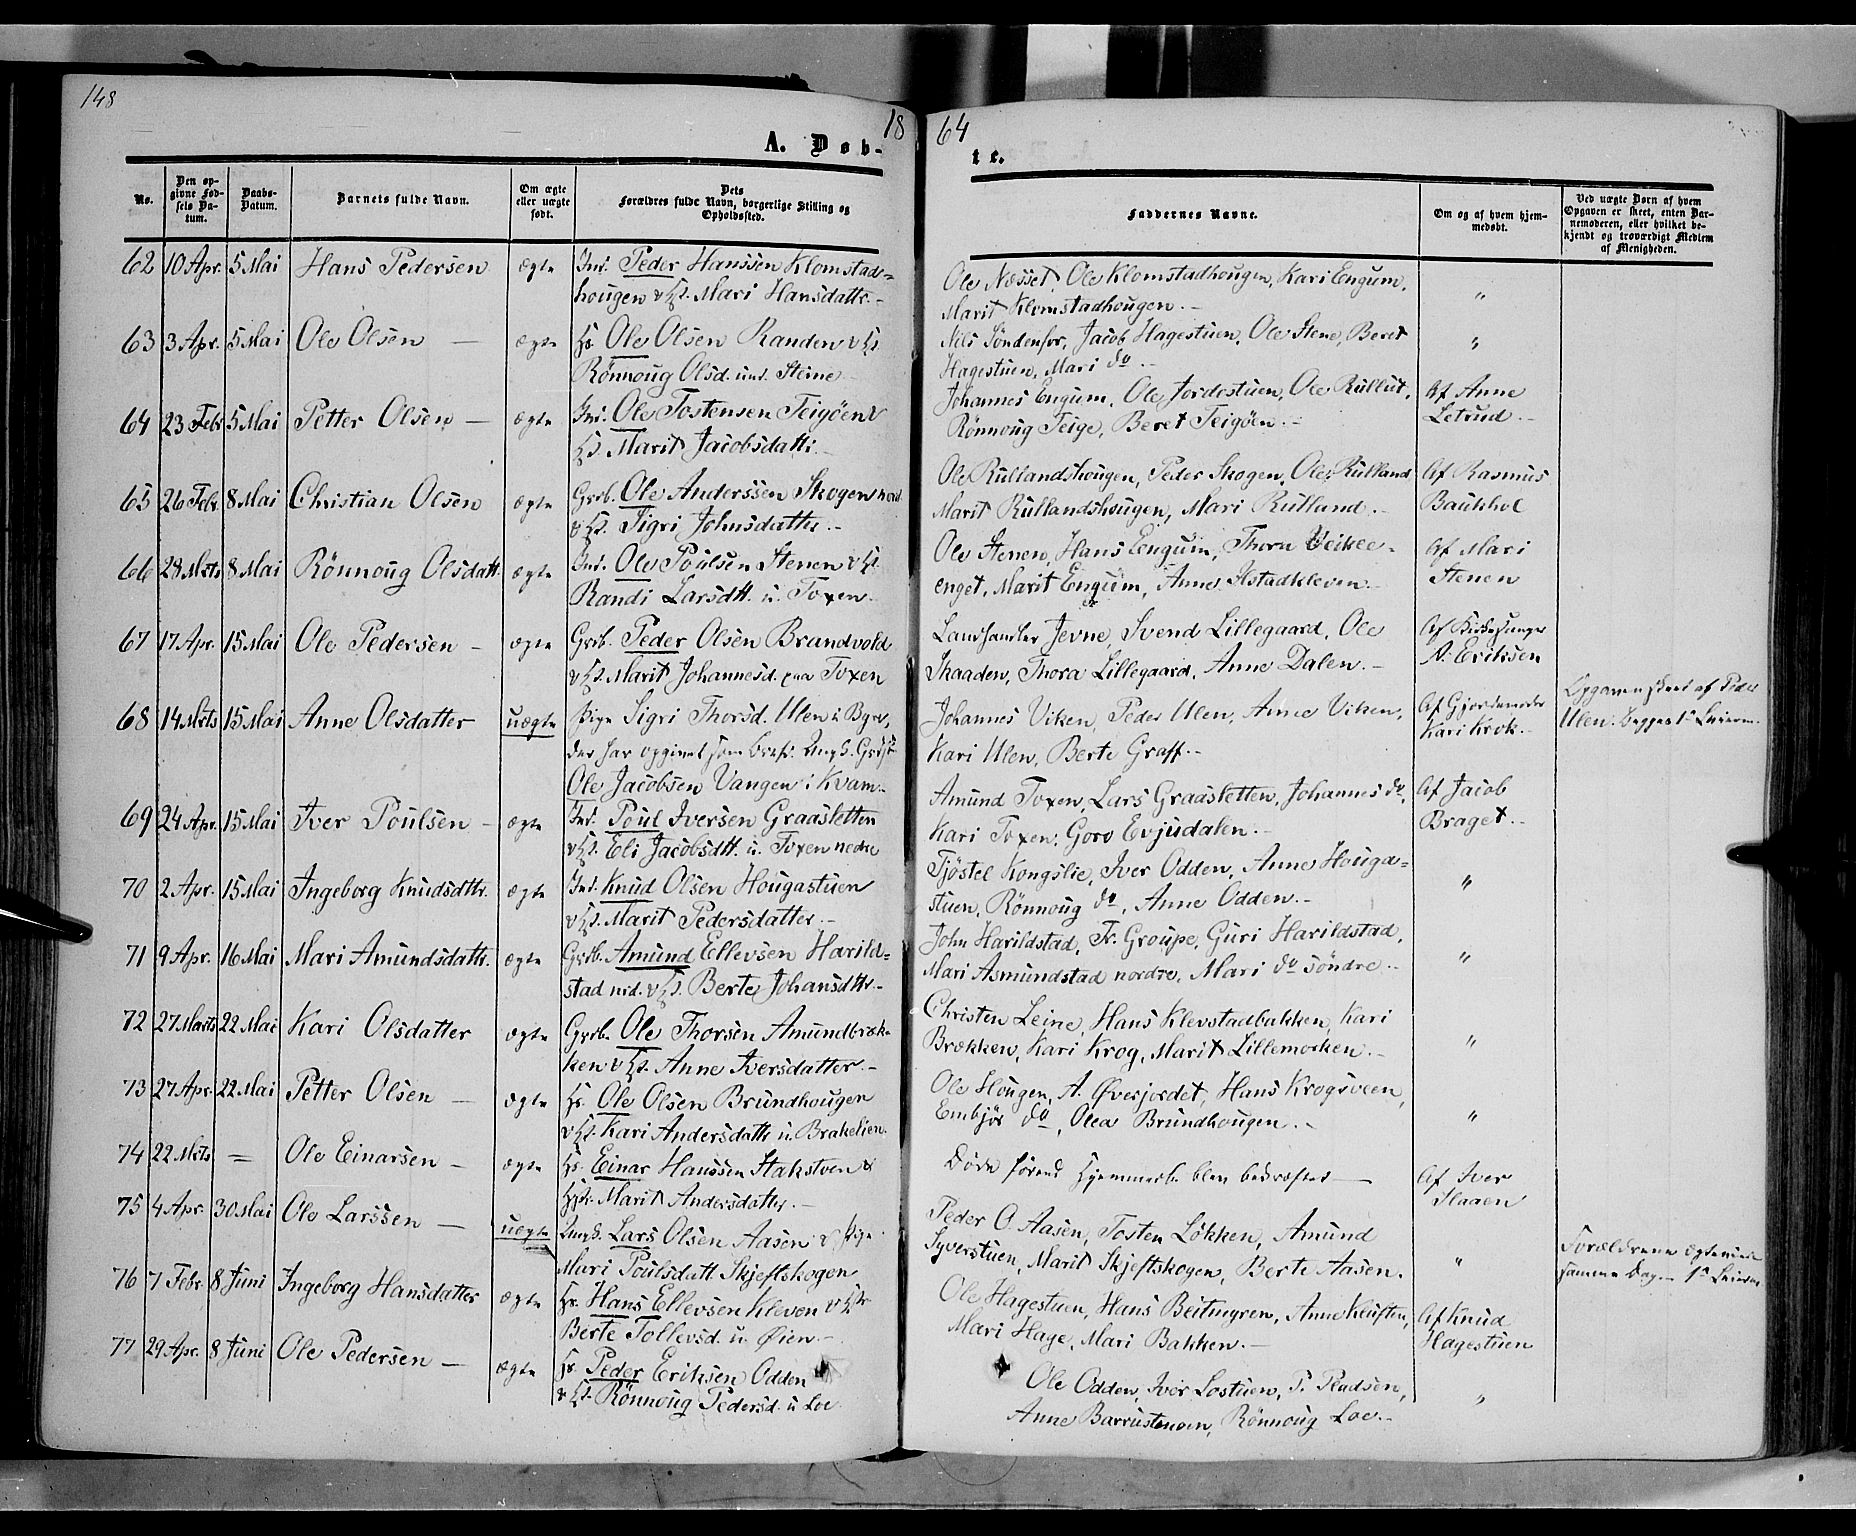 148
18 64
A. Døb- te.
No. | Den opgivne Fødsels Datum. | Daabs-Datum. | Barnets fulde Navn. | Om ægte eller uægte født. | Dets Forældres fulde Navn, borgerlige Stilling og Opholdssted. | Faddernes Navne. | Om og af hvem hjemmedøbt. | Ved uægte Børn af hvem Opgaven er skeet, enten Barnemoderen, eller hvilket bekjendt og troværdigt Medlem af Menigheden.
62 10 Apr. 5 Mai Hans Pedersen ægte Ind. Peder Hanssen Klomstad=
hougen & Hst. Mari Hansdattr.-
Ole Næsset, Ole Klomstadhougen, Kari Engum,
Marit Klomstadhougen.- "
63 3 Apr. 5 Mai Ole Olsen — ægte Hs. Ole Olsen Randen & Hst.
Rönnoug Olsd. und. Steine
Nils Söndenfor, Jacob Hagestuen, Ole Stene, Beret
Hagestuen, Mari do.- "
64 23 Febr 5 Mai Petter Olsen — ægte Ind. Ole Tostensen Teigöen &
Hst. Marit Jacobsdatt.
Johannes Engum, Ole Jordestuen, Ole Rullut,
Rönnoug Teige, Beret Teigöen.-
Af Anne
Letrud.-
65 26 Febr. 8 Mai Christian Olsen ægte Grb. Ole Anderssen Skogen nord.
& Hst. Sigri Johnsdatter.-
Ole Rullandshougen, Peder Skogen, Ole Rulland
Marit Rullandshougen, Mari Rulland.-
Af Rasmus
Baukhol
66 28 Mrts 8 Mai Rönnoug Olsdatt. ægte Ind. Ole Poulsen Stenen & Hst.
Randi Larsdtt. u. Toxen.
Ole Stenen, Hans Engum, Thora Veikle-
enget, Marit Engum, Anne Ilstadkleven.-
Af Mari
Stenen
67 17 Apr. 15 Mai Ole Pedersen — ægte Grb. Peder Olsen Brandvold
& Hst. Marit Johannesd. paa Toxen
Landhandler Jevne, Svend Lillegaard, Ole
Skaaden, Thora Lillegaard, Anne Dalen.-
Af Kirkesanger
A. Eriksen
68 14 Mrts 15 Mai Anne Olsdatter uægte Pige Sigri Thorsd. Ulen i
der har opgivet som Ungk.
Ole Jacobsen Vangen i Kvam.-
Johannes Viken, Peder Ulen, Anne Viken,
Kari Ulen, Berte Graff.-
Af Gjordemoder
Kari Krok.-
Opgaven skeet af Peder
Ulen. Begges 1ste Leierm.
69 24 Apr. 15 Mai Iver Poulsen — ægte Ind. Poul Iversen Graasletten
& Hst. Eli Jacobsdtt. u. Toxen nedre
Amund Toxen, Lars Graasletten, Johannes do,
Kari Toxen, Goro Evjudalen.-
Af Jacob
Braget.-
70 2 Apr. 15 Mai Ingeborg Knudsdttr. ægte Ind. Knud Olsen Hougastuen
& Hst. Marit Pedersdatter.-
Tjöstel Kongslie, Iver Odden, Anne Houga=
stuen, Rönnoug do, Anne Odden.- "
71 9 Apr. 16 Mai Mari Amundsdattr. ægte Grb. Amund Ellevsen Harild=
stad nrd. & Hst. Berte Johansdttr.-
John Harildstad, Fr. Groupe, Guri Harildstad,
Mari Asmundstad nordre, Mari do söndre.- "
72 27 Marts 22 Mai Kari Olsdatter ægte Grb. Ole Thorsen Amundbræk-
ken & Hst. Anne Iversdatter.-
Christen Leine, Hans Klevstadbakken, Kari
Brækken, Kari Krog, Marit Lillemoeken.- "
73 27 Apr. 22 Mai Petter Olsen — ægte Hs. Ole Olsen Brundhougen
& Hst. Kari Andersdattr u. Brakelien.
Ole Hougen, A. Øverjordet, Hans Krogsveen,
Embjör do, Olea Brundhougen.- "
74 22 Mrts = Ole Einarsen — ægte Hs. Einar Hanssen Stakstuen &
Hst. Marit Andersdatter.-
Døde førend Hjemmedb. blev bekræftet —
Af Iver
Slaaen
75 4 Apr. 30 Mai Ole Larssen — uægte Ungk. Lars Olsen Aasen & Pige
Mari Poulsdatt. Skjeftskogen
Peder O. Aasen, Tosten Lökken, Amund
Syverstuen, Marit Skjeftskogen, Berte Aasen. "
Forældrene ægteviede
samme Dag. — 1ste Leierm.
76 7 Febr. 8 Juni Ingeborg Hansdatter ægte Hs. Hans Ellevsen Kleven & Hst.
Berte Tollevsd. u. Øien.-
Ole Hagestuen, Hans Beitmyren, Anne Kluften,
Mari Hage, Mari Bakken.-
Af Knud
Hagestuen
77 29 Apr. 8 Juni Ole Pedersen — ægte Hs. Peder Eriksen Odden
& Hst. Rönnoug Pedersd. u. Loe.
Ole Odden, Iver Lostuen, P. Pladsen,
Anne Barrustuen, Rönnoug Loe.- "